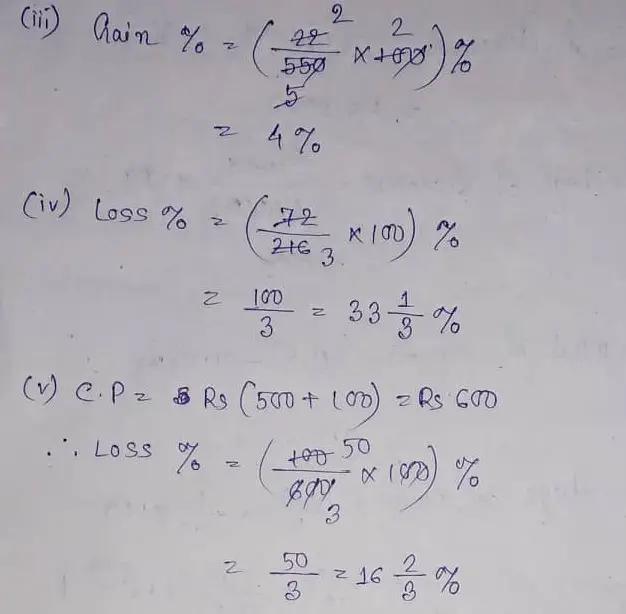 (iii) Gain % = (22/550 × 100)% 2 2 5
= 4%
(iv) Loss % = (72/216 × 100) % 3
= 100/3 = 33 1/3 %
(v) C.P = Rs (500 + 100) = Rs 600
∴ Loss % = (100/600 × 100) % 50 3
= 50/3 = 16 2/3 %